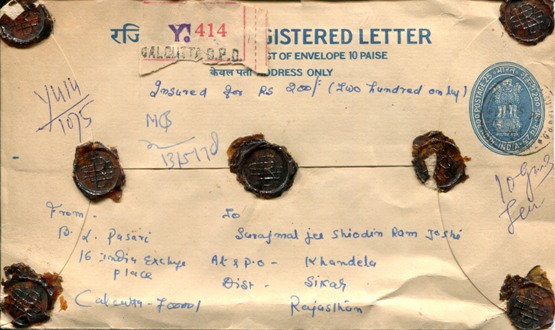 रजि
Y. 414
CALCUTTA G.P.O.
GISTERED LETTER
ST OF ENVELOPE 10 PAISE
केवल पता ADDRESS ONLY
Insured for Rs 200/- (Two hundred only)
10/5
13/5/78
From -
B. L. Pasari
16 India Exchge
Place
Calcutta - 700001
To
Surajmal jee Shiodin Ram Joshi
At & P.O - Khandela
Dist - Sikar
Rajasthan